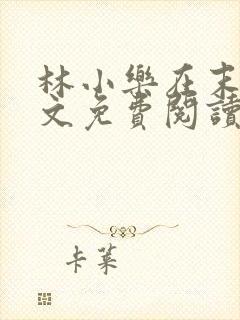 林小樂在末
文免費閱讀
卡萊